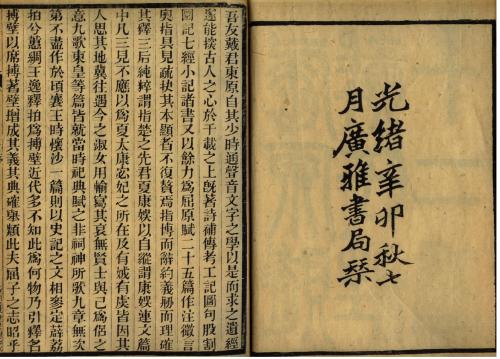 光緒辛卯秋七
月廣雅書局栞
吾友戴君東原自其少時通聲音文字之學以是而求之遺經
遂能探古人之心於千載之上旣著詩補傳考工記圖句股割
圜記七經小記諸書又以餘力為屈原賦二十五篇作注微言
奧指具見疏抉其本顯者不復贅焉指博而辭約義剙而理確
其釋三后純粹謂指楚之先君夏康娛以自縱謂康娛連文篇
中凡三見不應以為夏太康宓妃之所在及有娀有虞皆因其
人思其地冀往遇今之淑女用輸寫其哀無賢士與己為侶之
意九歌東皇等篇皆就當時祀典賦之非祠神所歌九章無次
第不盡作於頃襄王時懷沙一篇則以史記之文相參定薜荔
拍兮蕙綢王逸釋拍為搏壁近代多不知此為何物乃引釋名
搏壁以席搏著壁增成其義其典確舉類此夫屈子之志昭乎